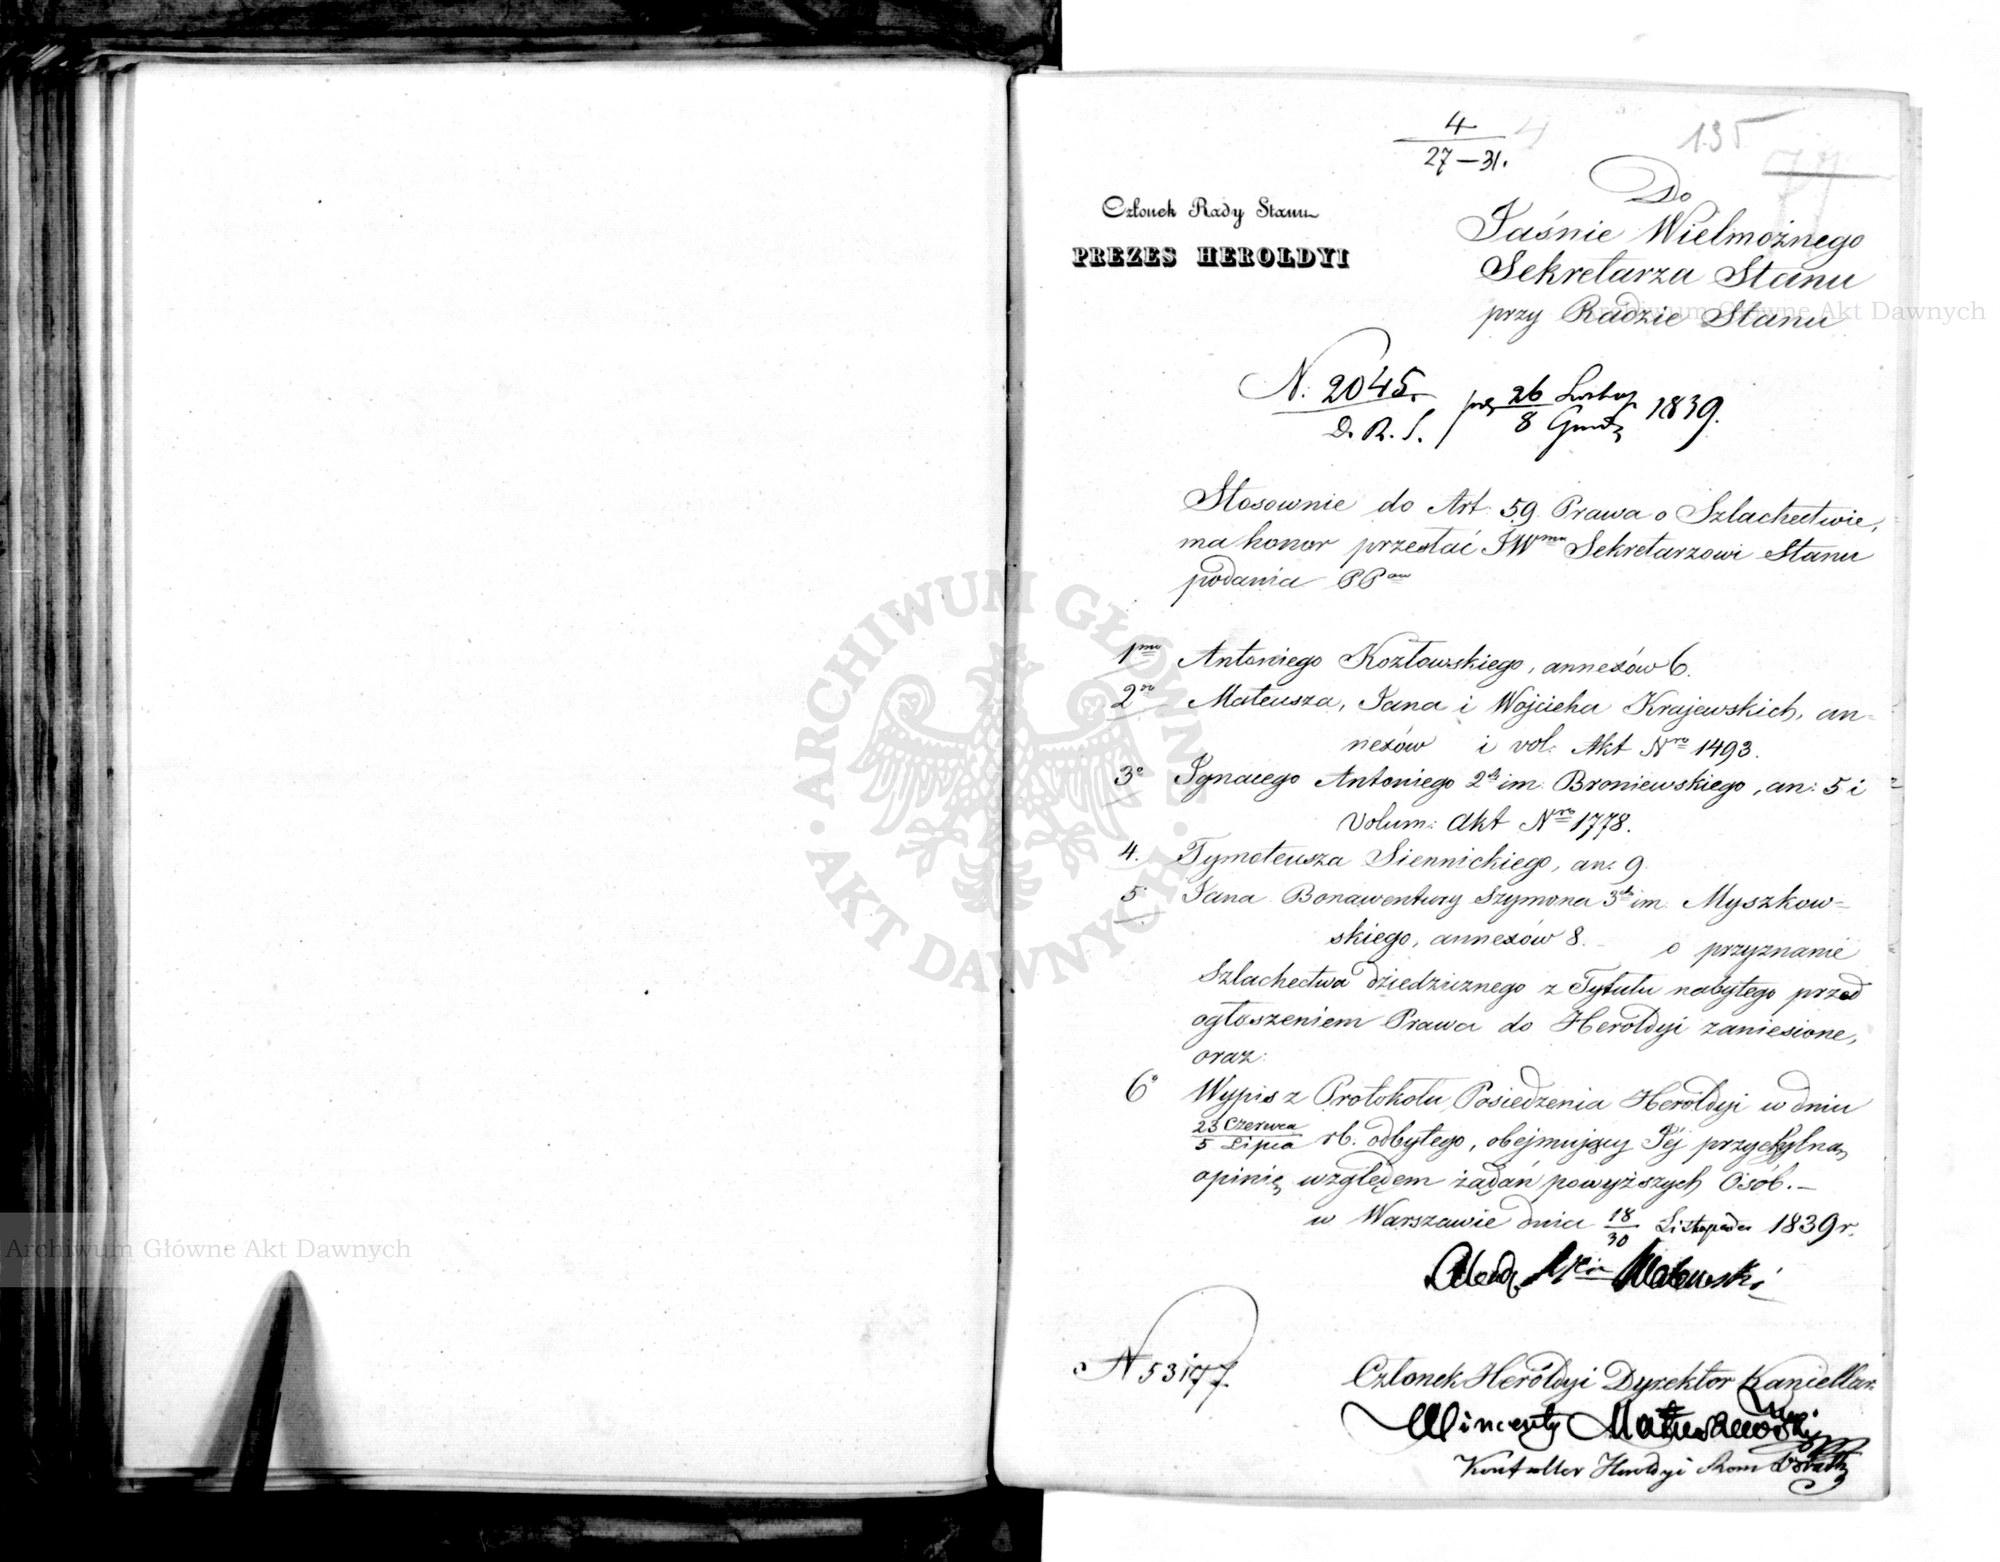 4 4
27 – 31.
135
77
Członek Rady Stanu
PREZES HEROLDYI
Do
Jaśnie Wielmożnego
Sekretarza Stanu
przy Radzie Stanu
N. 2045.
D. R. S.
26 Listop
8 Grud 1839.
Stosownie do Art. 59. Prawa o Szlachectwie,
ma honor przesłać JWmu Sekretarzowi Stanu
podania PPów
1mo Antoniego Kozłowskiego, annexów 6.
2do Mateusza, Jana i Wojcieha Krajewskich, an=
nexów i vol: Akt Nro 1493.
3o Ignacego Antoniego 2ch im: Broniewskiego, an: 5 i
Volum: Akt Nro 1778.
4. Tymoteusza Siennickiego, an: 9.
5. Jana Bonawentury Szymona 3ch im. Myszkow=
skiego, annexów 8. – o przyznanie
Szlachectwa dziedzicznego z Tytułu nabytego przed
ogłoszeniem Prawa do Heroldyi zaniesione,
oraz:
6o Wypis z Protokołu Posiedzenia Heroldyi w dniu
23 Czerwca
5 Lipca rb. odbytego, obejmujący Jéj przychylną
opinię względem żądań powyższych Osób. –
w Warszawie dnia 18/30 Listopada 1839 r.
Alexdr Walewski
N 53177.
Członek Heroldyi Dyrektor Kancellar.
Wincenty Matuszewski
Kontroller Heroldyi
ARCHIWUM GŁÓWNE
AKT DAWNYCH
Archiwum Główne Akt Dawnych
Archiwum Główne Akt Dawnych